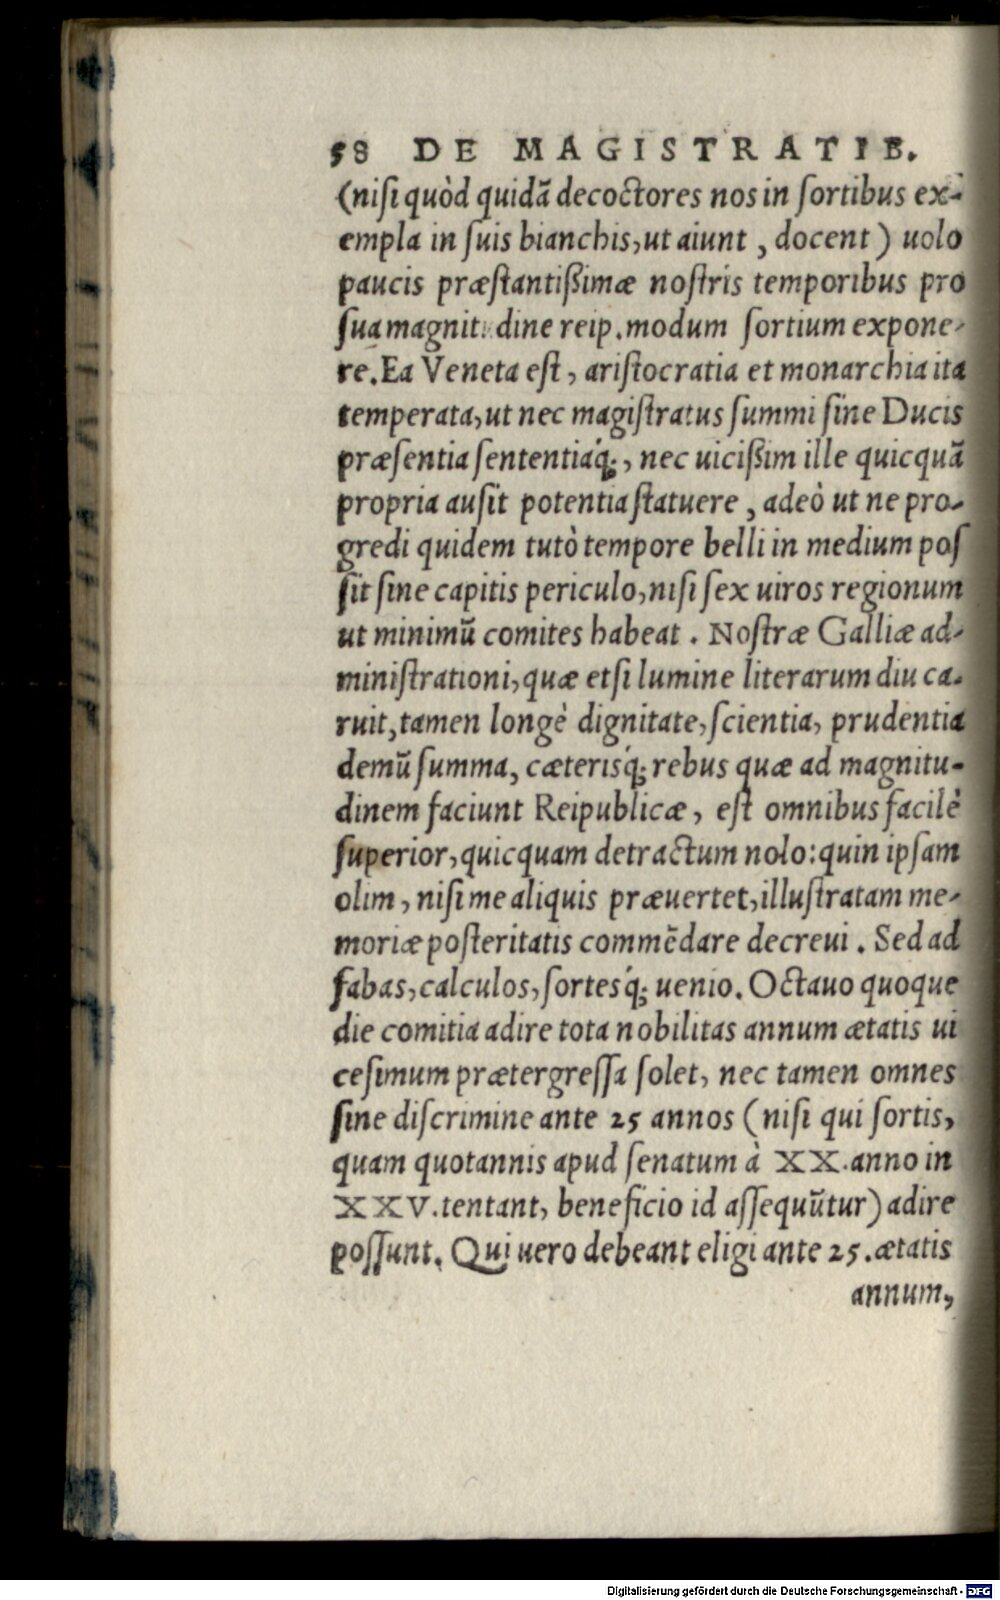 58 DE MAGISTRATIB.
(niſi quòd quidã decoctores nos in ſortibus ex-
empla in ſuis bianchis, ut aiunt, docent) uolo
paucis præſtantißimæ noſtris temporibus pro
ſua magnitudine reip. modum ſortium expone-
re. Ea Veneta eſt, ariſtocratia et monarchia ita
temperata, ut nec magiſtratus ſummi ſine Ducis
præſentia ſententiaq́;, nec uicißim ille quicquã
propria auſit potentia ſtatuere, adeò ut ne pro-
gredi quidem tutò tempore belli in medium poſ
ſit ſine capitis periculo, niſi ſex uiros regionum
ut minimũ comites habeat. Noſtræ Galliæ ad-
miniſtrationi, quæ etſi lumine literarum diu ca-
ruit, tamen longè dignitate, ſcientia, prudentia
demũ ſumma, cæterisq́; rebus quæ ad magnitu-
dinem faciunt Reipublicæ, eſt omnibus facilè
ſuperior, quicquam detractum nolo: quin ipſam
olim, niſi me aliquis præuertet, illuſtratam me-
moriæ poſteritatis commẽdare decreui. Sed ad
fabas, calculos, ſortesq́; uenio. Octauo quoque
die comitia adire tota nobilitas annum ætatis ui
ceſimum prætergreſſa ſolet, nec tamen omnes
ſine diſcrimine ante 25 annos (niſi qui ſortis,
quam quotannis apud ſenatum à XX. anno in
XXV. tentant, beneficio id aſſequũtur) adire
poſſunt. Qui uero debeant eligi ante 25. ætatis
annum,
Digitalisierung gefördert durch die Deutsche Forschungsgemeinschaft - DFG